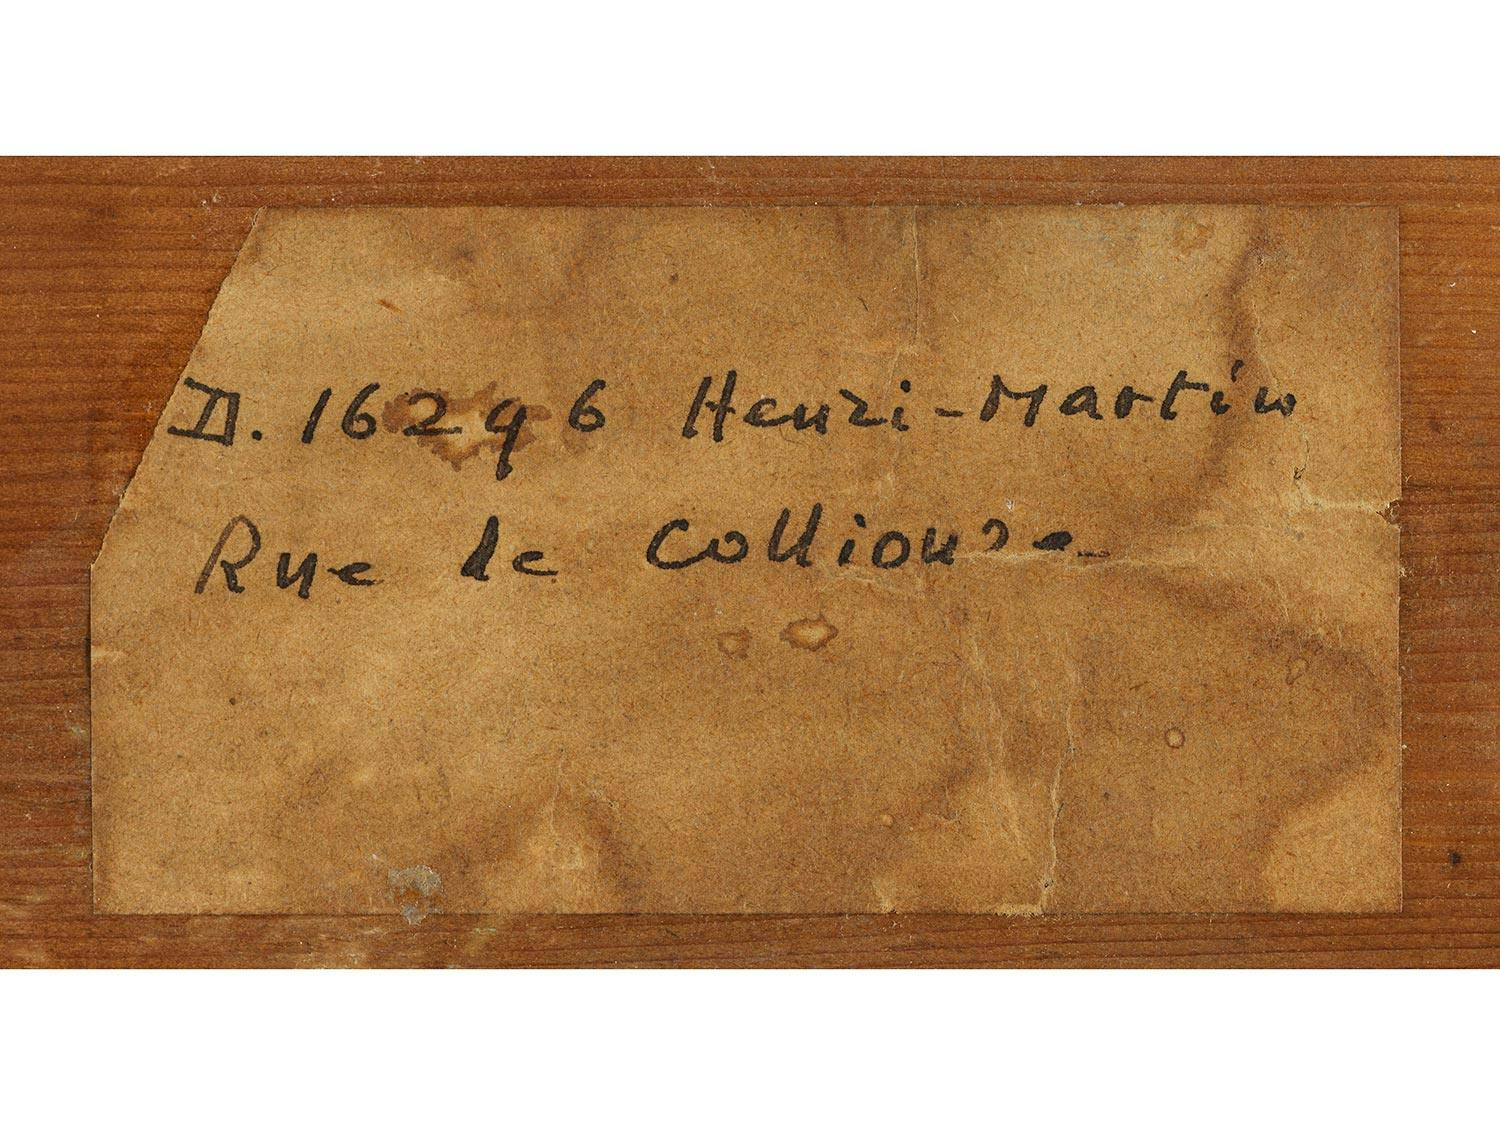 D. 16296 Henri-Martin
Rue de Collioure